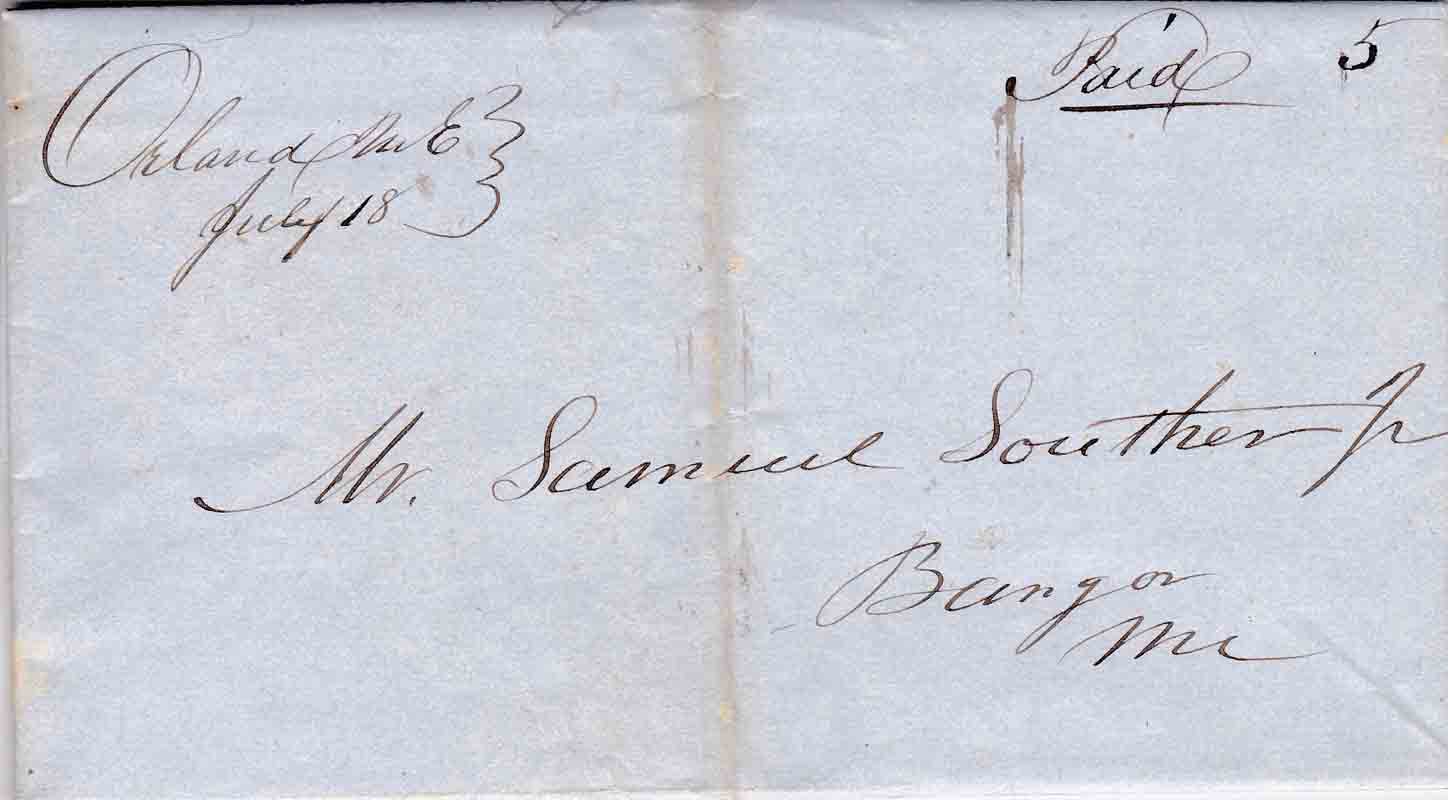 Paid 5
Orland ME
July 18
Mr. Samuel Souther Jr
Bangor
Me